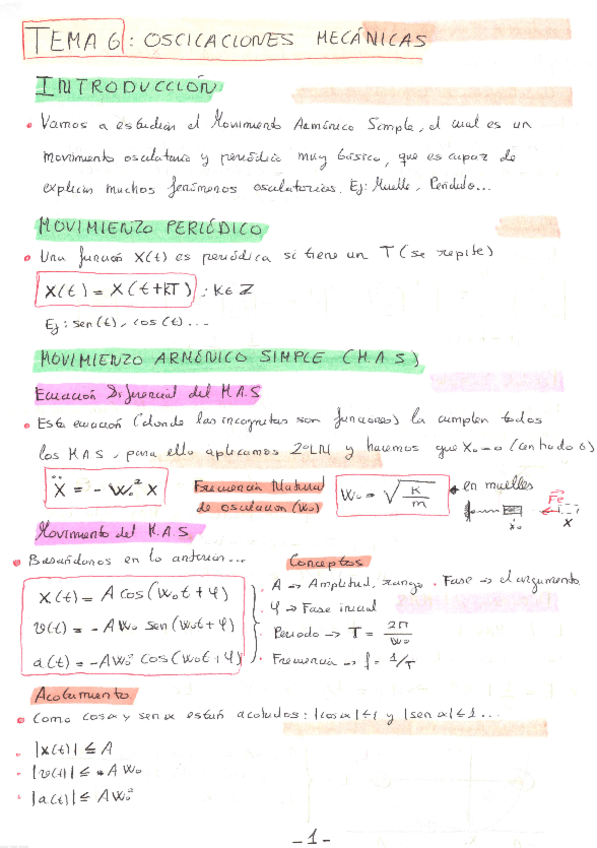 TEMA 6: OSCILACIONES MECÁNICAS
INTRODUCCIÓN
• Vamos a estudiar el Movimiento Armónico Simple, el cual es un
movimiento oscilatorio y periódico muy básico, que es capaz de
explicar muchos fenómenos oscilatorios. Ej: Muelle, Péndulo...
MOVIMIENTO PERIÓDICO
• Una función X(t) es periódica si tiene un T (se repite)
X(t) = X(t+KT) ; K∈ℤ
Ej: sen(t), cos(t)...
MOVIMIENTO ARMÓNICO SIMPLE (M.A.S)
Ecuación Diferencial del M.A.S
• Esta ecuación (donde las incognitas son funciones) la cumplen todos
los MAS, para ello aplicamos 2ºLN y hacemos que X₀=0 (centrado 0)
Ẍ = - W₀² X
Frecuencia Natural
de oscilacion (W₀)
W₀ = √(K/m)
en muelles
Fe
x₀
X
Movimiento del M.A.S
• Basándonos en lo anterior...
Conceptos
X(t) = A cos(W₀t + φ)
v(t) = - A W₀ sen(W₀t + φ)
a(t) = -AW₀² cos(W₀t + φ)
· A → Amplitud, rango · Fase → el argumento
· φ → Fase inicial
· Periodo → T = 2π/W₀
· Frecuencia → f = 1/T
Acotamiento
• Como cosα y senα están acotados: |cosα|≤1 y |senα|≤1...
· |x(t)| ≤ A
· |v(t)| ≤ AW₀
· |a(t)| ≤ AW₀²
-1-